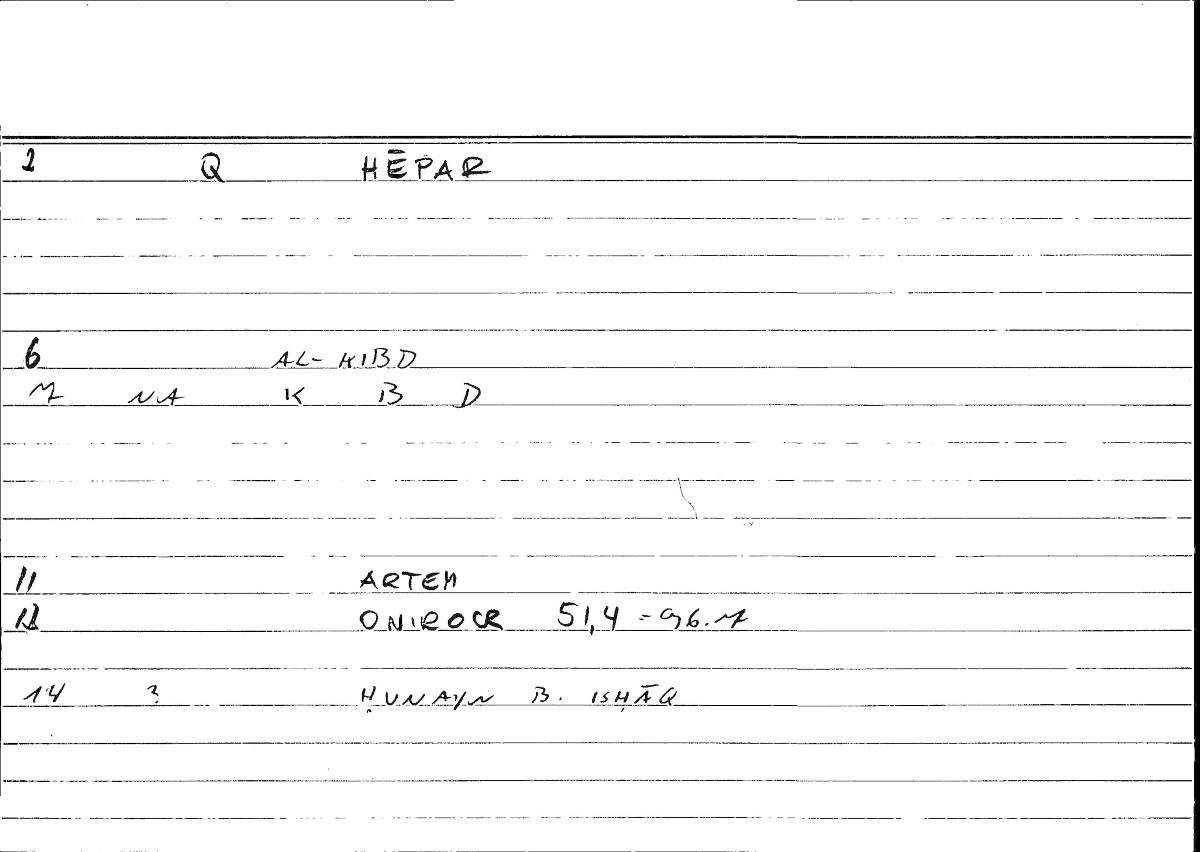 2 Q HĒPAR
6 AL-KIBD
NA K B D
11 ARTEM
12 ONIROCR 51,4 = 96.
14 ḤUNAYN B. ISḤĀQ